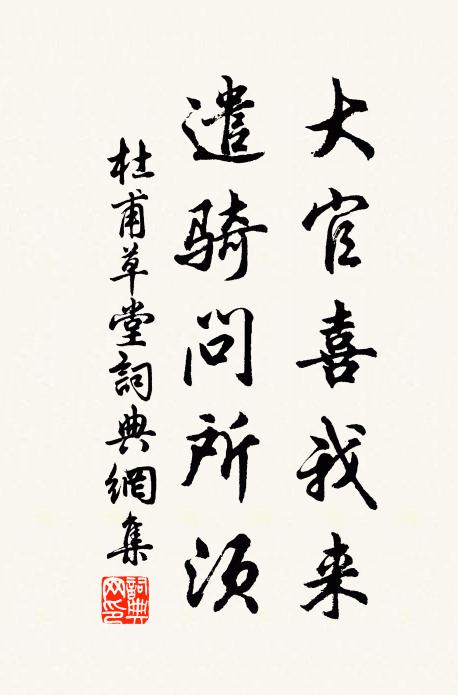 大官喜我来
遣骑问所须
杜甫草堂詞典網集
詞典网印